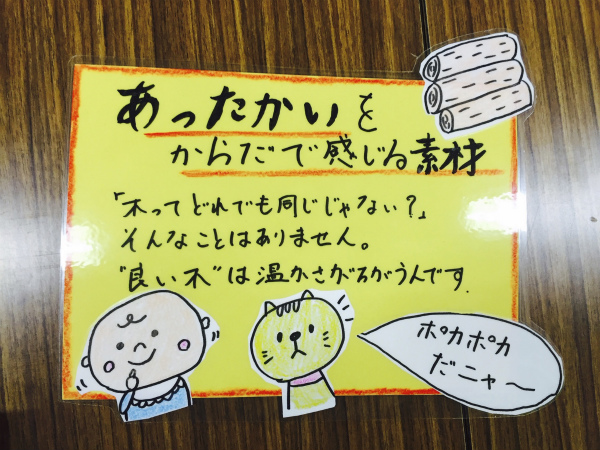 あったかいを
からだで感じる素材
「木ってどれでも同じじゃない？」
そんなことはありません。
"良い木"は温かさがちがうんです.
ポカポカ
だニャ〜